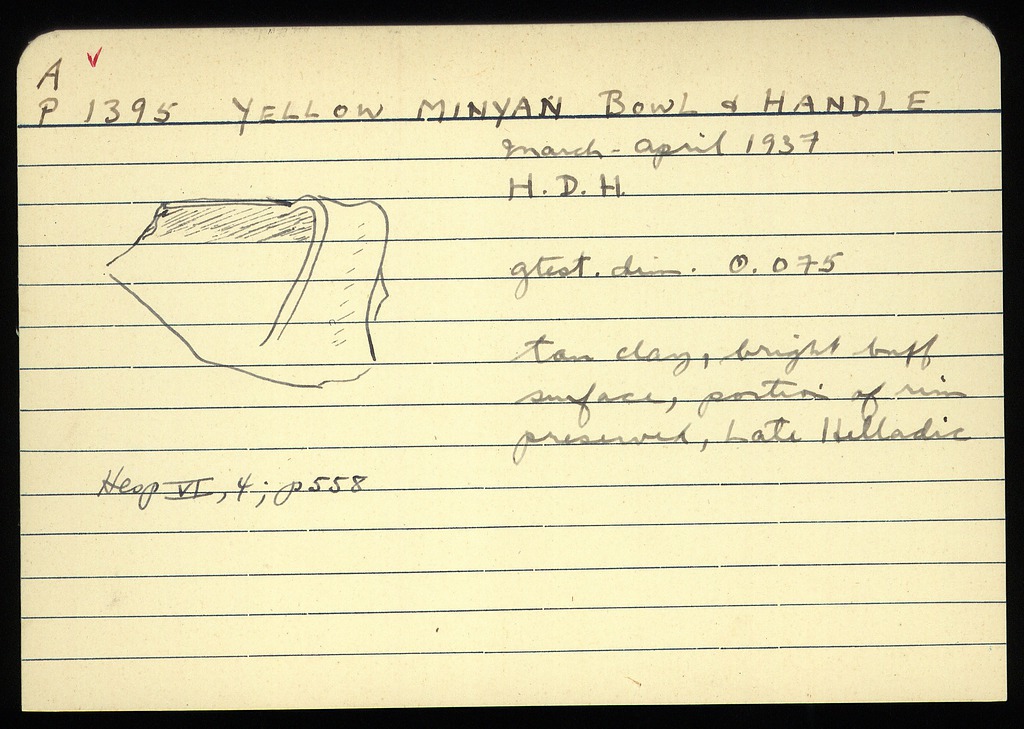 A
P 1395 YELLOW MINYAN BOWL & HANDLE
March - April 1937
H. D. H.
gtest. dim. 0.075
tan clay, bright buff
surface, portion of rim
preserved, Late Helladic
Hesp VI, 4; p558